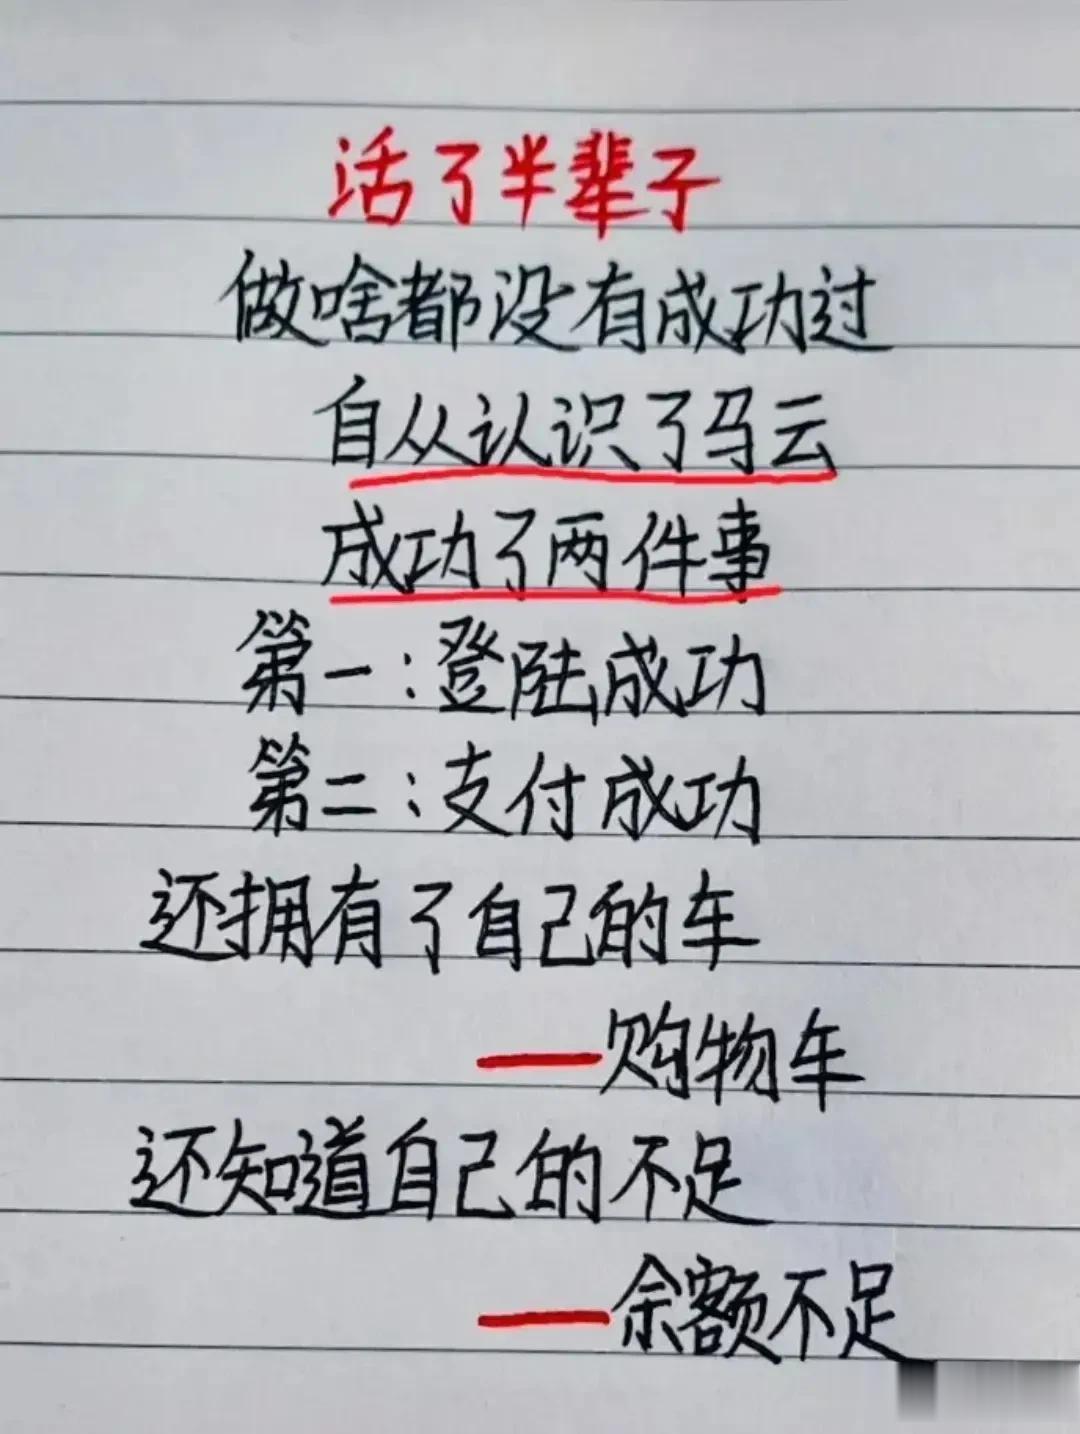 活了半辈子
做啥都没有成功过
自从认识了马云
成功了两件事
第一:登陆成功
第二:支付成功
还拥有了自己的车
—购物车
还知道自己的不足
—余额不足